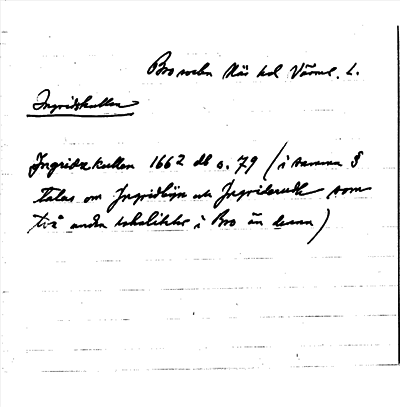 Bro socken När hd Värml. L.
Ingridskullen
Ingridzkullen 1662 db s. 79 (i samma §
talas om Ingridbÿn och Ingriderudh som
två andra lokaliteter i Bro än denna)